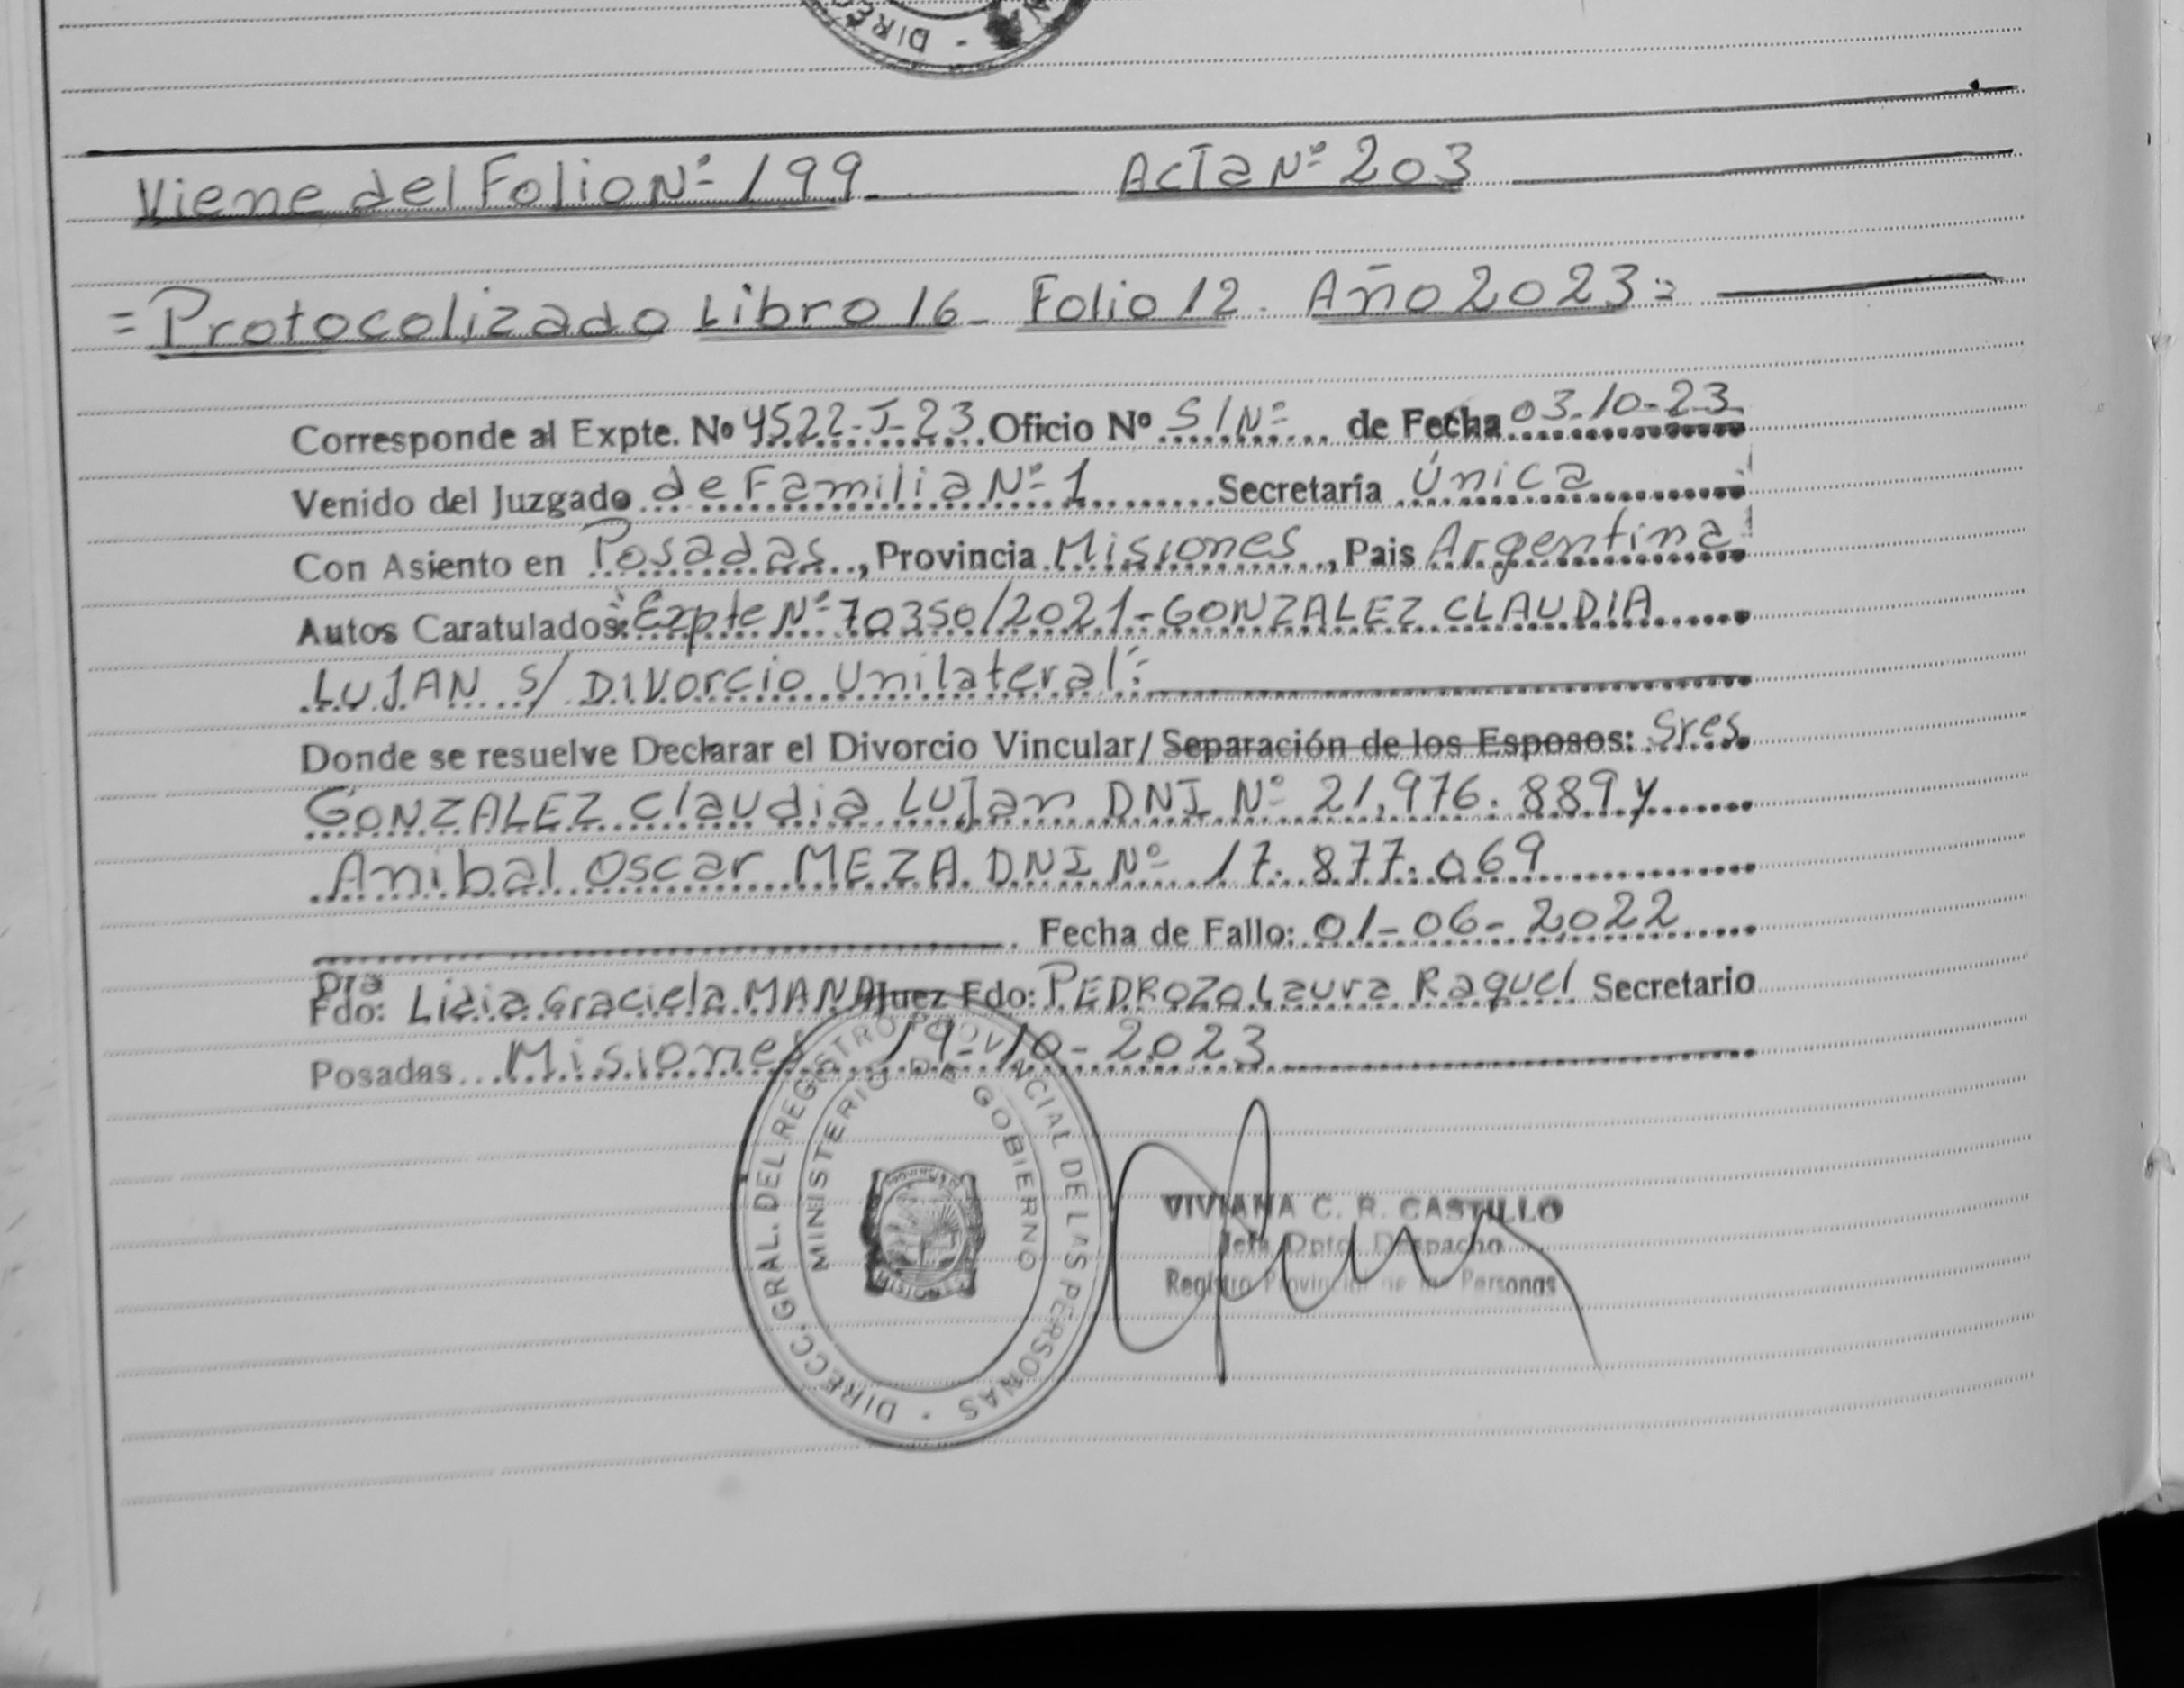 DIRE
Viene del Folio Nº 199 Acta Nº 203
= Protocolizado Libro 16 - Folio 12. Año 2023 =
Corresponde al Expte. Nº 4522-J-23 Oficio Nº S/Nº de Fecha 03-10-23
Venido del Juzgado de Familia Nº 1 Secretaría Única
Con Asiento en Posadas, Provincia Misiones, Pais Argentina
Autos Caratulados: "Expte Nº 70350/2021-GONZALEZ CLAUDIA
LUJAN S/ Divorcio Unilateral".
Donde se resuelve Declarar el Divorcio Vincular/ Separación de los Esposos: Sres
GONZALEZ Claudia Lujan DNI Nº 21.976.889 y
Anibal Oscar MEZA DNI Nº 17.877.069
Fecha de Fallo: 01-06-2022
Dra
Fdo: Lidia Graciela Juez Fdo: PEDROZO Laura Raquel Secretario
Posadas Misiones 19-10-2023
DIRECC. GRAL. DEL REGISTRO PROVINCIAL DE LAS PERSONAS
MINISTERIO DE GOBIERNO
MISIONES
VIVIANA C. R. CASTILLO
Jefa Dpto. Despacho
Registro Provincial de las Personas